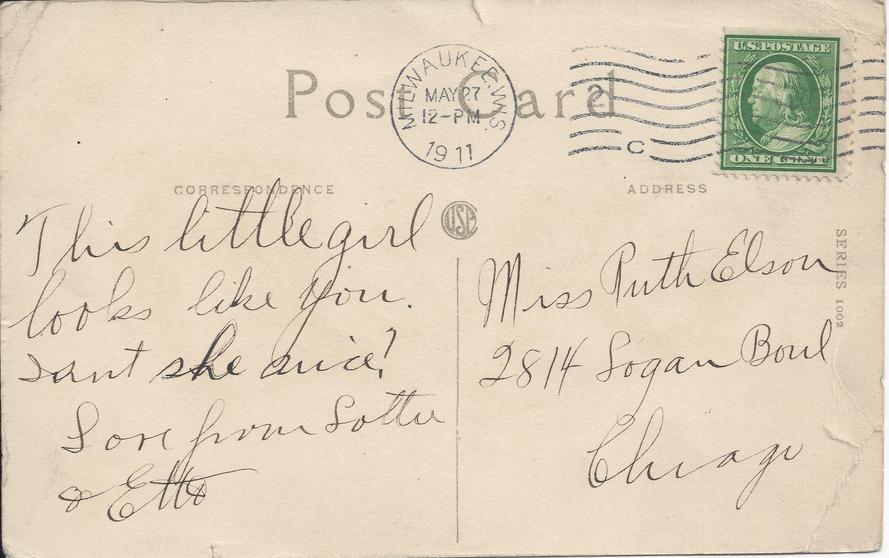 Post Card
MILWAUKEE, WIS.
MAY 27
12-PM
1911
C
U.S. POSTAGE
ONE
CORRESPONDENCE
ADDRESS
USP
This little girl
looks like you.
Isn't she nice!
Love from Lottie
& Etta
Miss Ruth Elson
2814 Logan Boul
Chicago
SERIES 1002